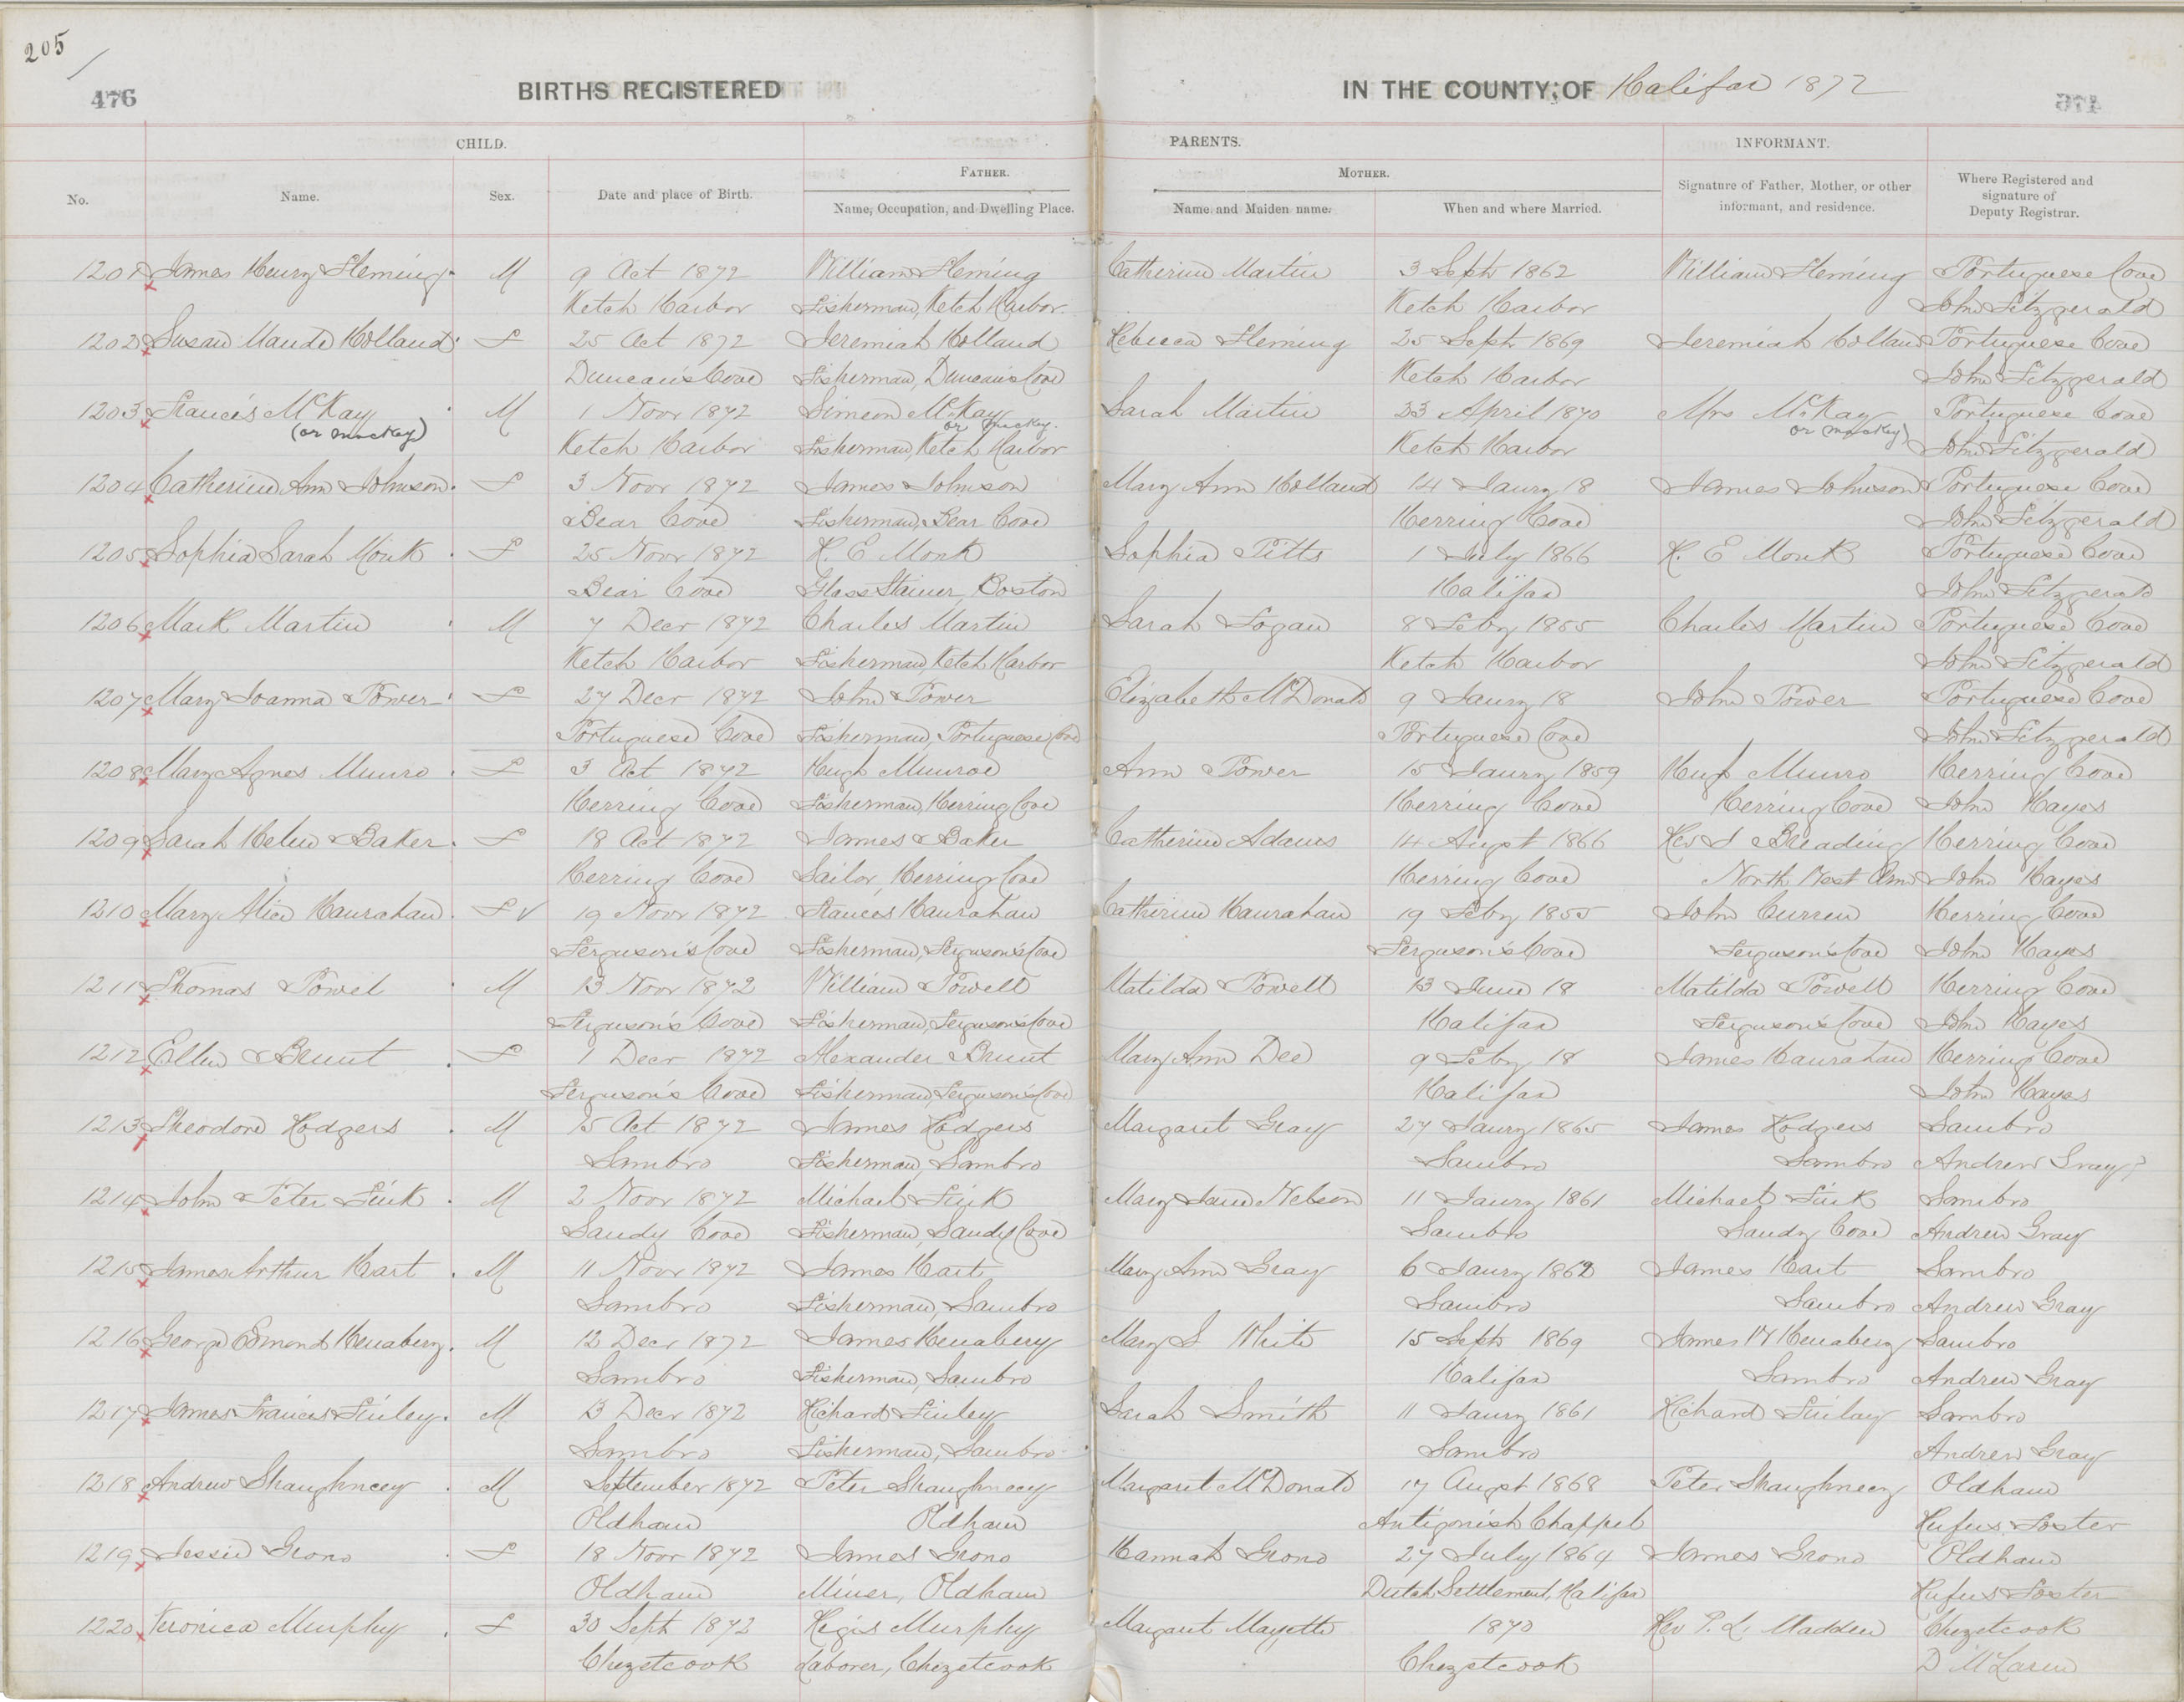 205
476
BIRTHS REGISTERED IN THE COUNTY OF Halifax 1872
CHILD. PARENTS. INFORMANT.
FATHER. MOTHER.
No. Name. Sex. Date and place of Birth. Name, Occupation, and Dwelling Place. Name and Maiden name. When and where Married. Signature of Father, Mother, or other informant, and residence. Where Registered and signature of Deputy Registrar.
1201 James Henry Fleming M 9 Oct 1872 William Fleming Catherine Martin 3 Sept 1862 William Fleming Portuguese Cove
Ketch Harbor Fisherman, Ketch Harbor Ketch Harbor John Fitzgerald
1202 Susan Maude Holland F 25 Oct 1872 Jeremiah Holland Rebecca Fleming 25 Sept 1869 Jeremiah Holland Portuguese Cove
Duncan's Cove Fisherman, Duncan's Cove Ketch Harbor John Fitzgerald
1203 Francis McKay M 1 Novr 1872 Simeon McKay Sarah Martin 23 April 1870 Mrs McKay Portuguese Cove
(or Mackey) or Mackey. or Mackey)
Ketch Harbor Fisherman, Ketch Harbor Ketch Harbor John Fitzgerald
1204 Catherine Ann Johnson F 3 Novr 1872 James Johnson Mary Ann Holland 14 Jaury 18 James Johnson Portuguese Cove
Bear Cove Fisherman, Bear Cove Herring Cove John Fitzgerald
1205 Sophia Sarah Monk F 25 Novr 1872 H. E Monk Sophia Pitts 1 July 1866 H. E Monk Portuguese Cove
Bear Cove Glass Stainer, Boston Halifax John Fitzgerald
1206 Mark Martin M 7 Decr 1872 Charles Martin Sarah Logan 8 Feby 1855 Charles Martin Portuguese Cove
Ketch Harbor Fisherman, Ketch Harbor Ketch Harbor John Fitzgerald
1207 Mary Joanna Power F 27 Decr 1872 John Power Elizabeth McDonald 9 Jaury 18 John Power Portuguese Cove
Portuguese Cove Fisherman, Portuguese Cove Portuguese Cove John Fitzgerald
1208 Mary Agnes Munro F 3 Oct 1872 Hugh Munroe Ann Power 15 Jaury 1859 Hugh Munro Herring Cove
Herring Cove Fisherman, Herring Cove Herring Cove Herring Cove John Hayes
1209 Sarah Helen Baker F 18 Oct 1872 James Baker Catherine Adams 14 Augst 1866 Rev J Breading Herring Cove
Herring Cove Sailor, Herring Cove Herring Cove North West Arm John Hayes
1210 Mary Alice Hanrahan F 19 Novr 1872 Francis Hanrahan Catherine Hanrahan 19 Feby 1855 John Curren Herring Cove
Ferguson's Cove Fisherman, Ferguson's Cove Ferguson's Cove Ferguson's Cove John Hayes
1211 Thomas Powel M 13 Novr 1872 William Powell Matilda Powell 13 June 18 Matilda Powell Herring Cove
Ferguson's Cove Fisherman, Ferguson's Cove Halifax Ferguson's Cove John Hayes
1212 Ellen Brunt F 1 Decr 1872 Alexander Brunt Mary Ann Dee 9 Feby 18 James Hanrahan Herring Cove
Ferguson's Cove Fisherman, Ferguson's Cove Halifax John Hayes
1213 Theodore Hodgers M 15 Oct 1872 James Hodgers Margaret Gray 27 Jaury 1865 James Hodgers Sambro
Sambro Fisherman, Sambro Sambro Sambro Andrew Gray
1214 John Peter Fink M 2 Novr 1872 Michael Fink Mary Jane Nelson 11 Jaury 1861 Michael Fink Sambro
Sandy Cove Fisherman, Sandy Cove Sambro Sandy Cove Andrew Gray
1215 James Arthur Hart M 11 Novr 1872 James Hart Mary Ann Gray 6 Jaury 1862 James Hart Sambro
Sambro Fisherman, Sambro Sambro Sambro Andrew Gray
1216 George Edmond Henabery M 12 Decr 1872 James Henabery Mary S White 15 Sept 1869 James W Henabery Sambro
Sambro Fisherman, Sambro Halifax Sambro Andrew Gray
1217 James Francis Finley M 13 Decr 1872 Richard Finley Sarah Smith 11 Jaury 1861 Richard Finlay Sambro
Sambro Fisherman, Sambro Sambro Andrew Gray
1218 Andrew Shaughnecy M September 1872 Peter Shaughnecy Margaret McDonald 17 Augst 1868 Peter Shaughnecy Oldham
Oldham Oldham Antigonish Chappel Rufus Foster
1219 Jessie Grono F 18 Novr 1872 James Grono Hannah Grono 27 July 1864 James Grono Oldham
Oldham Miner, Oldham Dutch Settlement, Halifax Rufus Foster
1220 Veronica Murphy F 30 Sept 1872 Regis Murphy Margaret Mayette 1870 Rev P. L. Madden Chezetcook
Chezetcook Laborer, Chezetcook Chezetcook D McLaren